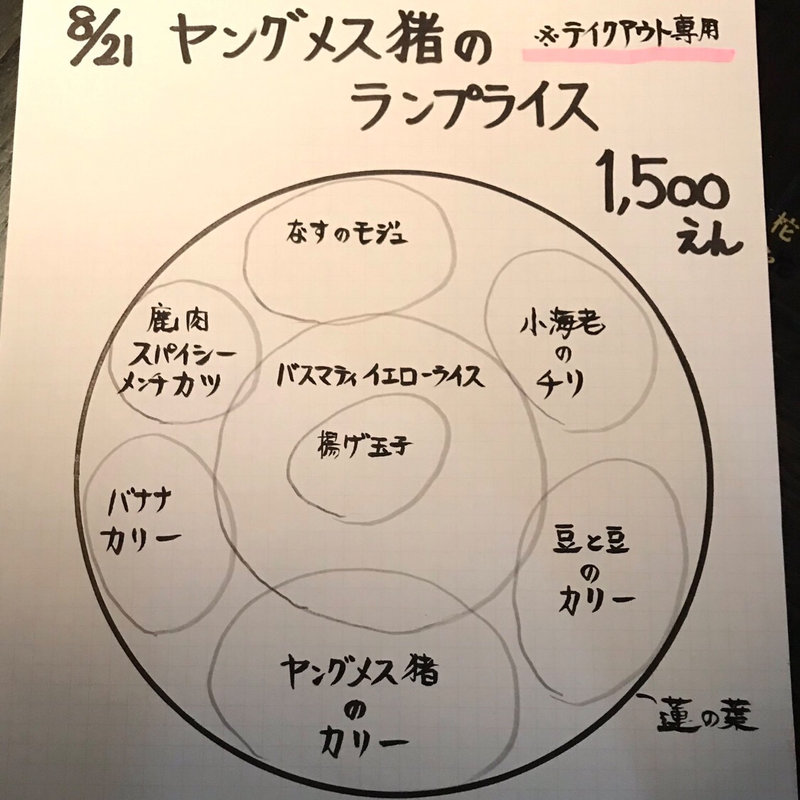 8/21 ヤングメス猪の
※テイクアウト専用
ランプライス
1,500
えん
なすのモジュ
鹿肉
スパイシー
メンチカツ
小海老
の
チリ
バスマティイエローライス
揚げ玉子
バナナ
カリー
豆と豆
の
カリー
ヤングメス猪
の
カリー
蓮の葉